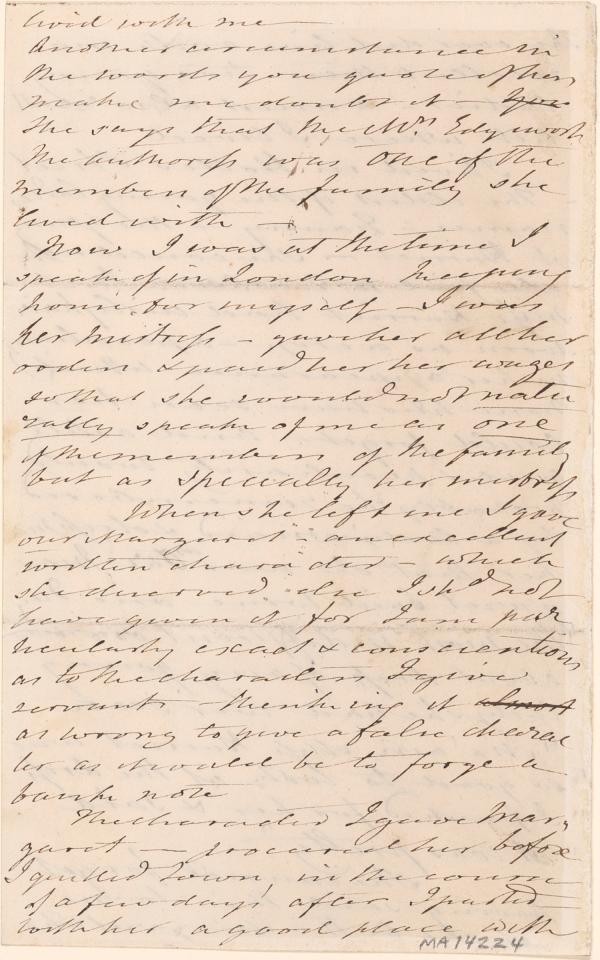 lived with me —
Another circumstance in
the words you quote of hers
make me doubt it —
She says that the Mrs Edgeworth
the authoress was one of the
members of the family she
lived with —
Now I was at the time I
speak of in London keeping
house for myself — I was
her mistress — gave her all her
orders & paid her her wages
so that she would not natu
rally speak of me as one
of the members of the family
but as specially her mistress
When she left me I gave
our Margaret — an excellent
written character — which
she deserved else I shd not
have given it for I am par
ticularly exact & conscientious
as to the characters I give
servants — thinking it almost
as wrong to give a false charac
ter as it would be to forge a
bank note
The character I gave Mar,,
garet — procured her before
I quitted town in the course
of a few days after I parted
with her a good place with
MA 14224